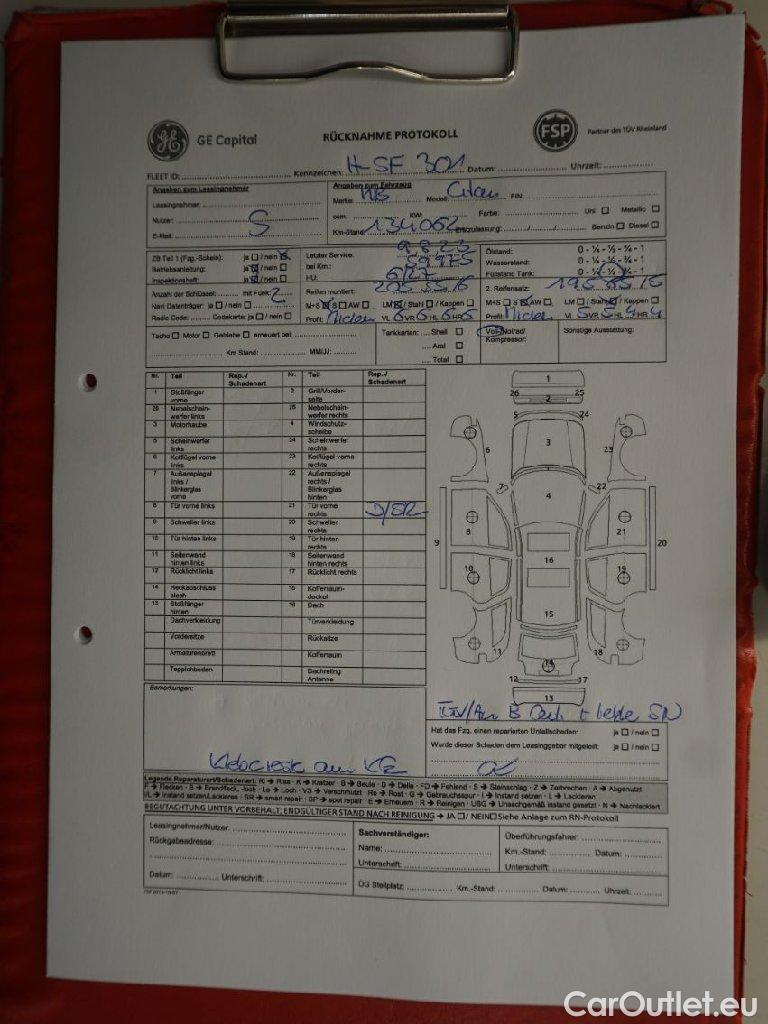 GE GE Capital
RÜCKNAHME PROTOKOLL
FSP Partner des TÜV Rheinland
FLEET ID: Kennzeichen: H-SF 301 Datum: Uhrzeit:
Angaben zum Leasingnehmer
Leasingnehmer:
Nutzer: S
E-Mail:
Angaben zum Fahrzeug
Marke: MB Modell: Citan FIN:
ccm: KW: Farbe: Uni Metallic
Km-Stand: 134062 Erstzulassung: Benzin Diesel
ZB Teil 1 (Fzg.-Schein): ja / nein
Betriebsanleitung: ja / nein
Inspektionsheft: ja / nein
Letzter Service: 9.8.23
bei Km.: 59975
HU: 6/27
Ölstand: 0 - ¼ - ½ - ¾ - 1
Wasserstand: 0 - ¼ - ½ - ¾ - 1
Füllstand Tank: 0 - ¼ - ½ - ¾ - 1
Anzahl der Schlüssel: mit Funk: 2
Navi Datenträger: ja / nein
Radio Code: Codekarte: ja / nein
Reifen montiert:
M+S S AW, LM / Stahl / Kappen
Profil: VL 6 VR 6 HL 6 HR 6
2. Reifensatz:
M+S S AW, LM Stahl / Kappen
Profil: VL 5 VR 5 HL HR 4
Tacho Motor Getriebe erneuert bei:
Km Stand: MM/JJ:
Tankkarten: Shell
Aral
Total
Kompressor:
Sonstige Ausstattung:
Nr. Teil Rep.-/ Schadenart Nr. Teil Rep.-/ Schadenart
1 Stoßfänger vorne 2 Grill/Vorderseite
26 Nebelscheinwerfer links 25 Nebelscheinwerfer rechts
3 Motorhaube 4 Windschutzscheibe
5 Scheinwerfer links 24 Scheinwerfer rechts
6 Kotflügel vorne links 23 Kotflügel vorne rechts
7 Außenspiegel links / Blinkerglas vorne 22 Außenspiegel rechts / Blinkerglas hinten
8 Tür vorne links 21 Tür vorne rechts D/SR
9 Schweller links 20 Schweller rechts
10 Tür hinten links 19 Tür hinten rechts
11 Seitenwand hinten links 18 Seitenwand hinten rechts
12 Rücklicht links 17 Rücklicht rechts
14 Heckabschluss blech 15 Kofferraum-deckel
13 Stoßfänger hinten 16 Dach
Dachverkleidung Türverkleidung
Vordersitze Rücksitze
Armaturenbrett Kofferraum
Teppichboden Dachreling Antenne
1
26 25
2
5 24
3
6 23
7 22
4
8 21
9 20
16
10 19
15
11 18
14
12 17
13
Bemerkungen:
Hat das Fzg. einen reparierten Unfallschaden: ja / nein
Wurde dieser Schaden dem Leasinggeber mitgeteilt: ja / nein
Legende Reparaturart/Schadenart: R → Riss · K → Kratzer · B → Beule · D → Delle · FD → Fehlend · S → Steinschlag · Z → Zerbrochen · A → Abgenutzt
F → Flecken · B → Brandfleck, -loch · Lo → Loch · V3 → Verschmutzt · Ro → Rost · G → Gebrauchsspur · I → Instand setzen · L → Lackieren
I/L → Instand setzen/Lackieren · SR → smart repair · SP → spot repair · E → Erneuern · R → Reinigen · USG → Unsachgemäß instand gesetzt · N → Nachlackiert
BEGUTACHTUNG UNTER VORBEHALT, ENDGÜLTIGER STAND NACH REINIGUNG → JA / NEIN Siehe Anlage zum RN-Protokoll
Leasingnehmer/Nutzer:
Rückgabeadresse:
Datum: Unterschrift:
Sachverständiger:
Name:
Unterschrift:
Überführungsfahrer:
Km.-Stand: Datum:
Unterschrift:
ÜG Stellplatz: Km.-Stand: Datum: Uhrzeit:
CarOutlet.eu